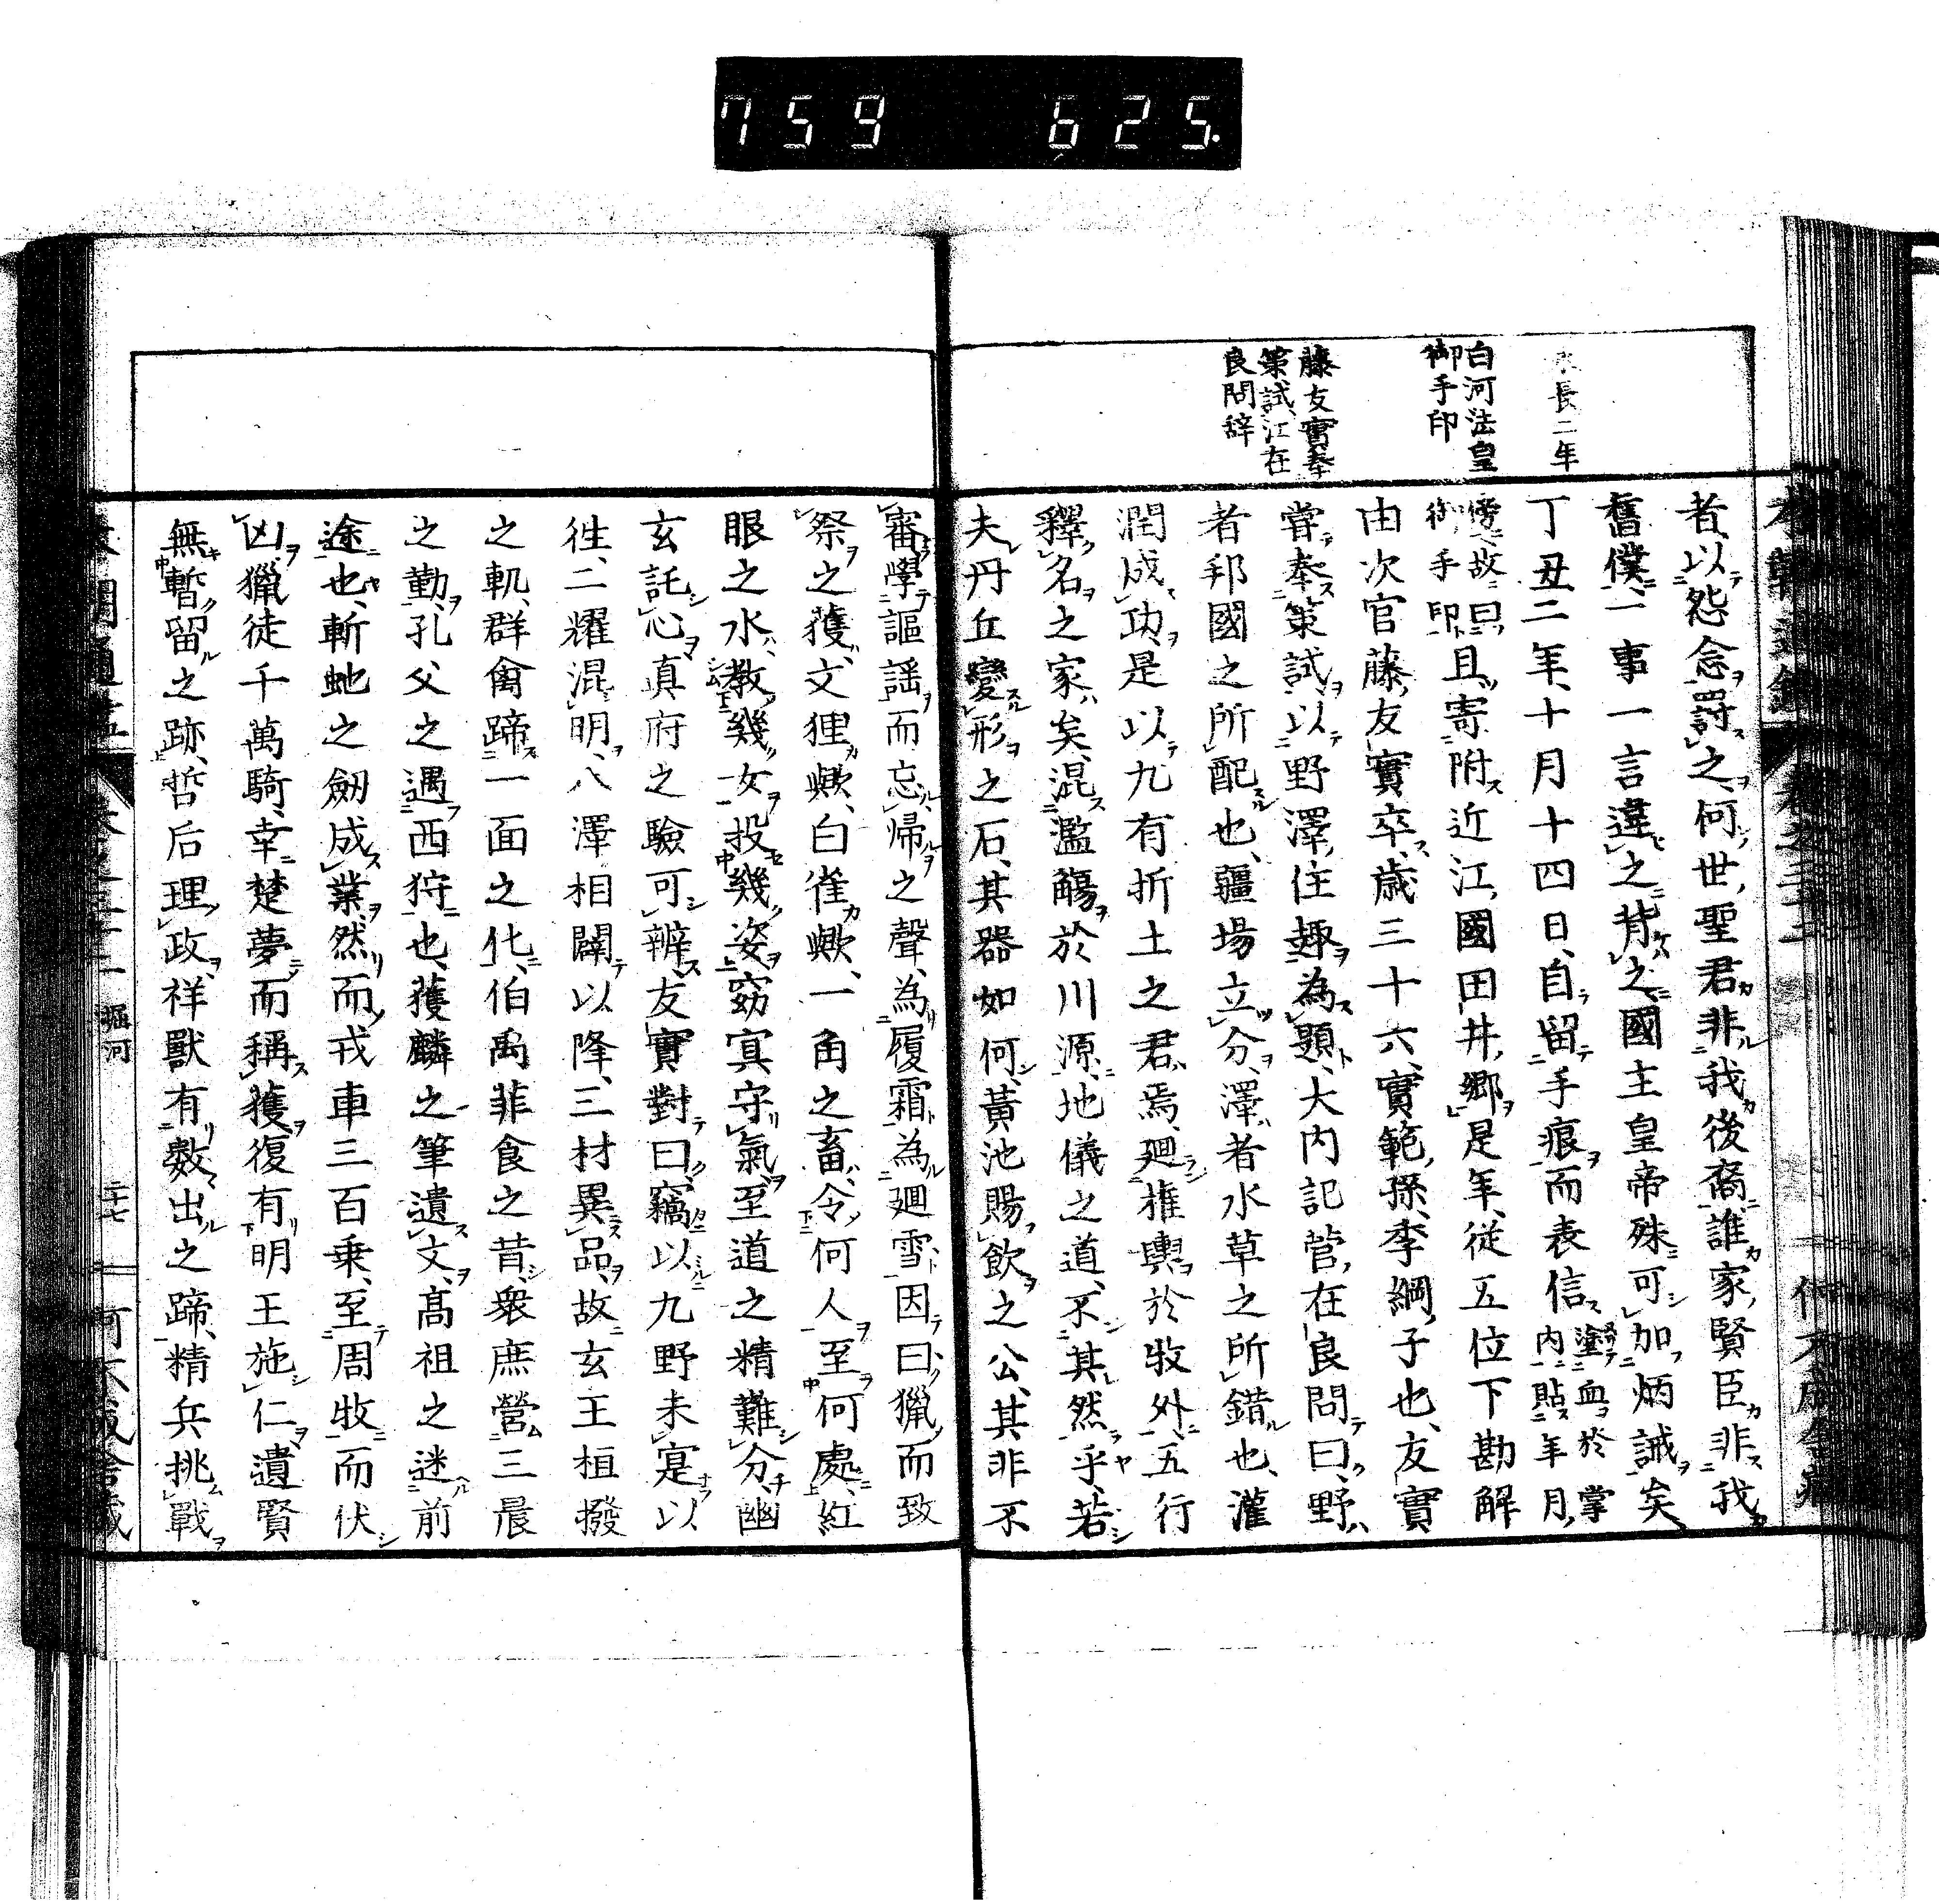 759 625.
永長二年
白河法皇
御手印
藤友實奉
策試江在
良問辞
者以怨念罸之何世聖君非我後裔誰家賢臣非我
舊僕一事一言違之背之國主皇帝殊可加炳誡矣
丁丑二年十月十四日自留手痕而表信塗血於掌内貼年月
傍故曰御手印且寄附近江國田井郷是年従五位下勘解
由次官藤友實卒歳三十六實範孫季綱子也友實
嘗奉策試以野澤住趣為題大内記菅在良問曰野
者邦國之所配也疆場立分澤者水草之所錯也灌
潤成功是以九有折土之君焉廻權輿於牧外五行
釋名之家矣混濫觴於川源地儀之道不其然乎若
夫丹丘變形之石其器如何黃池賜飲之公其非不
審學謳謡而忘帰之聲為履霜為廻雪因曰獵而致
祭之獲文狸歟白雀歟一角之畜令何人至何處紅
眼之水教幾女投幾姿窈寘守氣至道之精難分幽
玄託心真府之驗可辨友實對曰竊以九野未寔以
徃二耀混明八澤相闢以降三材異品故玄王桓撥
之軌群禽蹄一面之化伯禹菲食之昔衆庶營三晨
之勤孔父之遇西狩也獲麟之筆遺文髙祖之迷前
途也斬虵之劒成業然而戎車三百乗至周牧而伏
凶獵徒千萬騎幸楚夢而稱獲復有明王施仁遺賢
無暫留之跡哲后理政祥獸有數出之蹄精兵挑戰
堀河
二十七